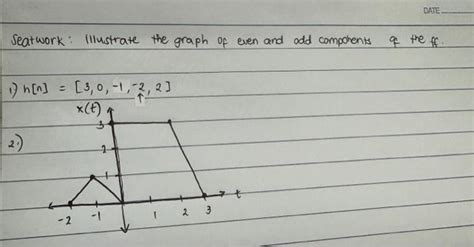 DATE
Seatwork: Illustrate the graph of even and odd components of the ff.
1) h[n] = [3, 0, -1, -2, 2]
↑
2.)
x(t)
3
2
1
-2 -1 1 2 3 t